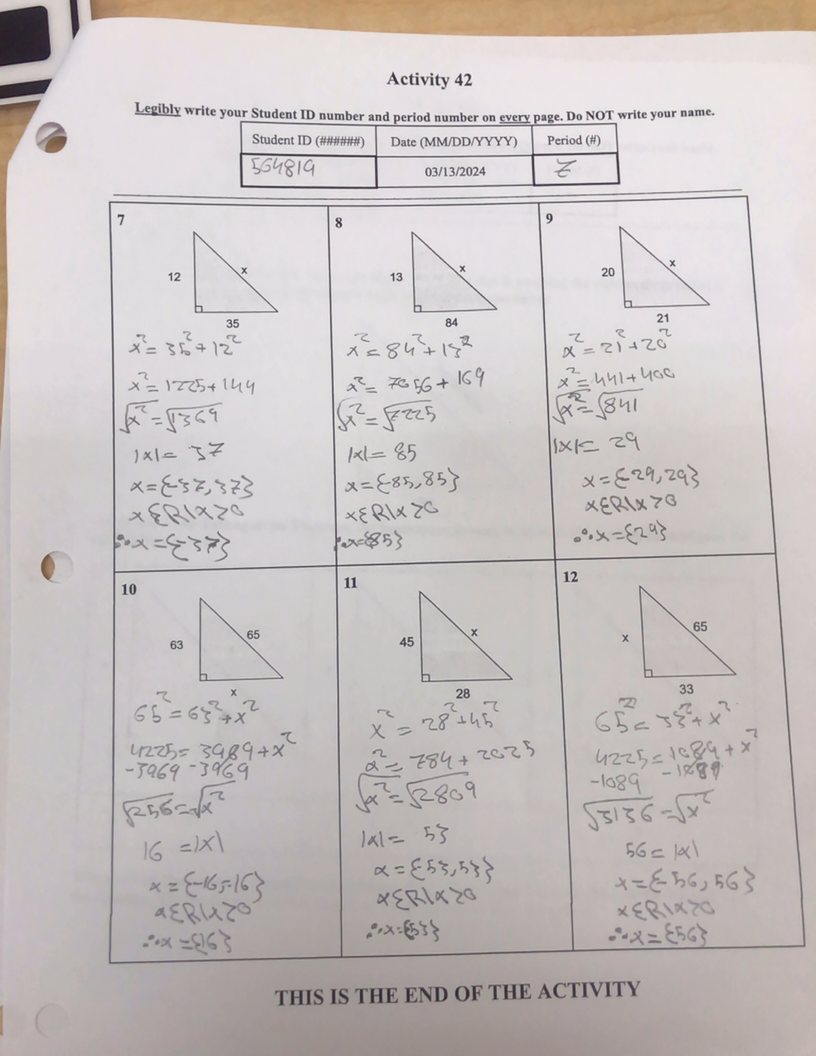 Activity 42
Legibly write your Student ID number and period number on every page. Do NOT write your name.
Student ID (######) Date (MM/DD/YYYY) Period (#)
564819 03/13/2024 7
7
12
x
35
x²=35²+12²
x²=1225+144
√x²=√1369
|x|= 37
x={-37,37}
x∈R|x>0
∴x={-37}
8
13
x
84
x²=84²+13²
x²= 7056+169
√x²=√7225
|x|= 85
x={-85,85}
x∈R|x>0
∴x={85}
9
20
x
21
x²=21²+20²
x²=441+400
√x²=√841
|x|= 29
x={-29,29}
x∈R|x>0
∴x={29}
10
63
65
x
65²=63²+x²
4225=3989+x²
-3969 -3969
√256=√x²
16 =|x|
x={-16,-16}
x∈R|x>0
∴x={16}
11
45
x
28
x²=28²+45²
x²=784+2025
√x²=√2809
|x|= 53
x={53,53}
x∈R|x>0
∴x={53}
12
x
65
33
65²=33²+x²
4225=1089+x²
-1089 -1089
√3136=√x²
56=|x|
x={-56,56}
x∈R|x>0
∴x={56}
THIS IS THE END OF THE ACTIVITY